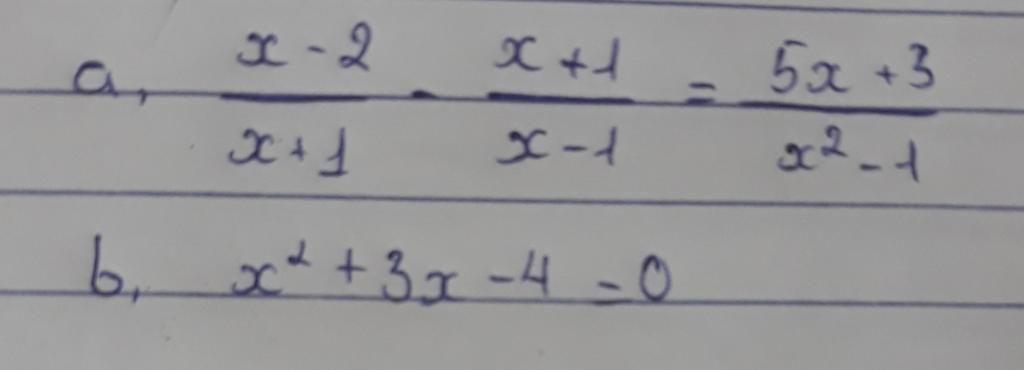 a, x-2/x+1 - x+1/x-1 = 5x+3/x²-1
b, x²+3x-4=0